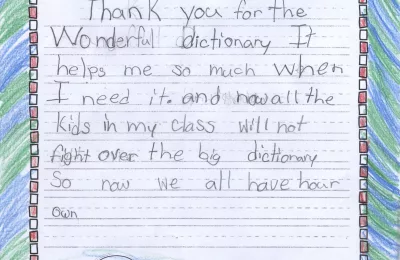 Thank you for the
Wonderful dictionary It
helps me so much when
I need it. and now all the
kids in my class will not
fight over the big dictionary
So now we all have hour
own